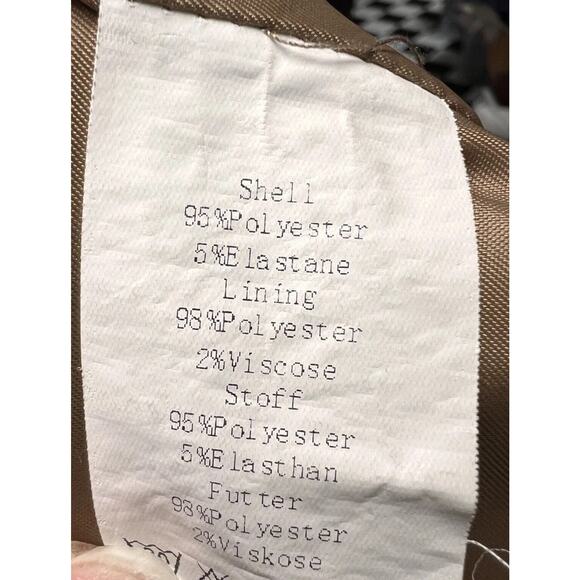 Shell
95%Polyester
5%Elastane
Lining
98%Polyester
2%Viscose
Stoff
95%Polyester
5%Elasthan
Futter
98%Polyester
2%Viskose